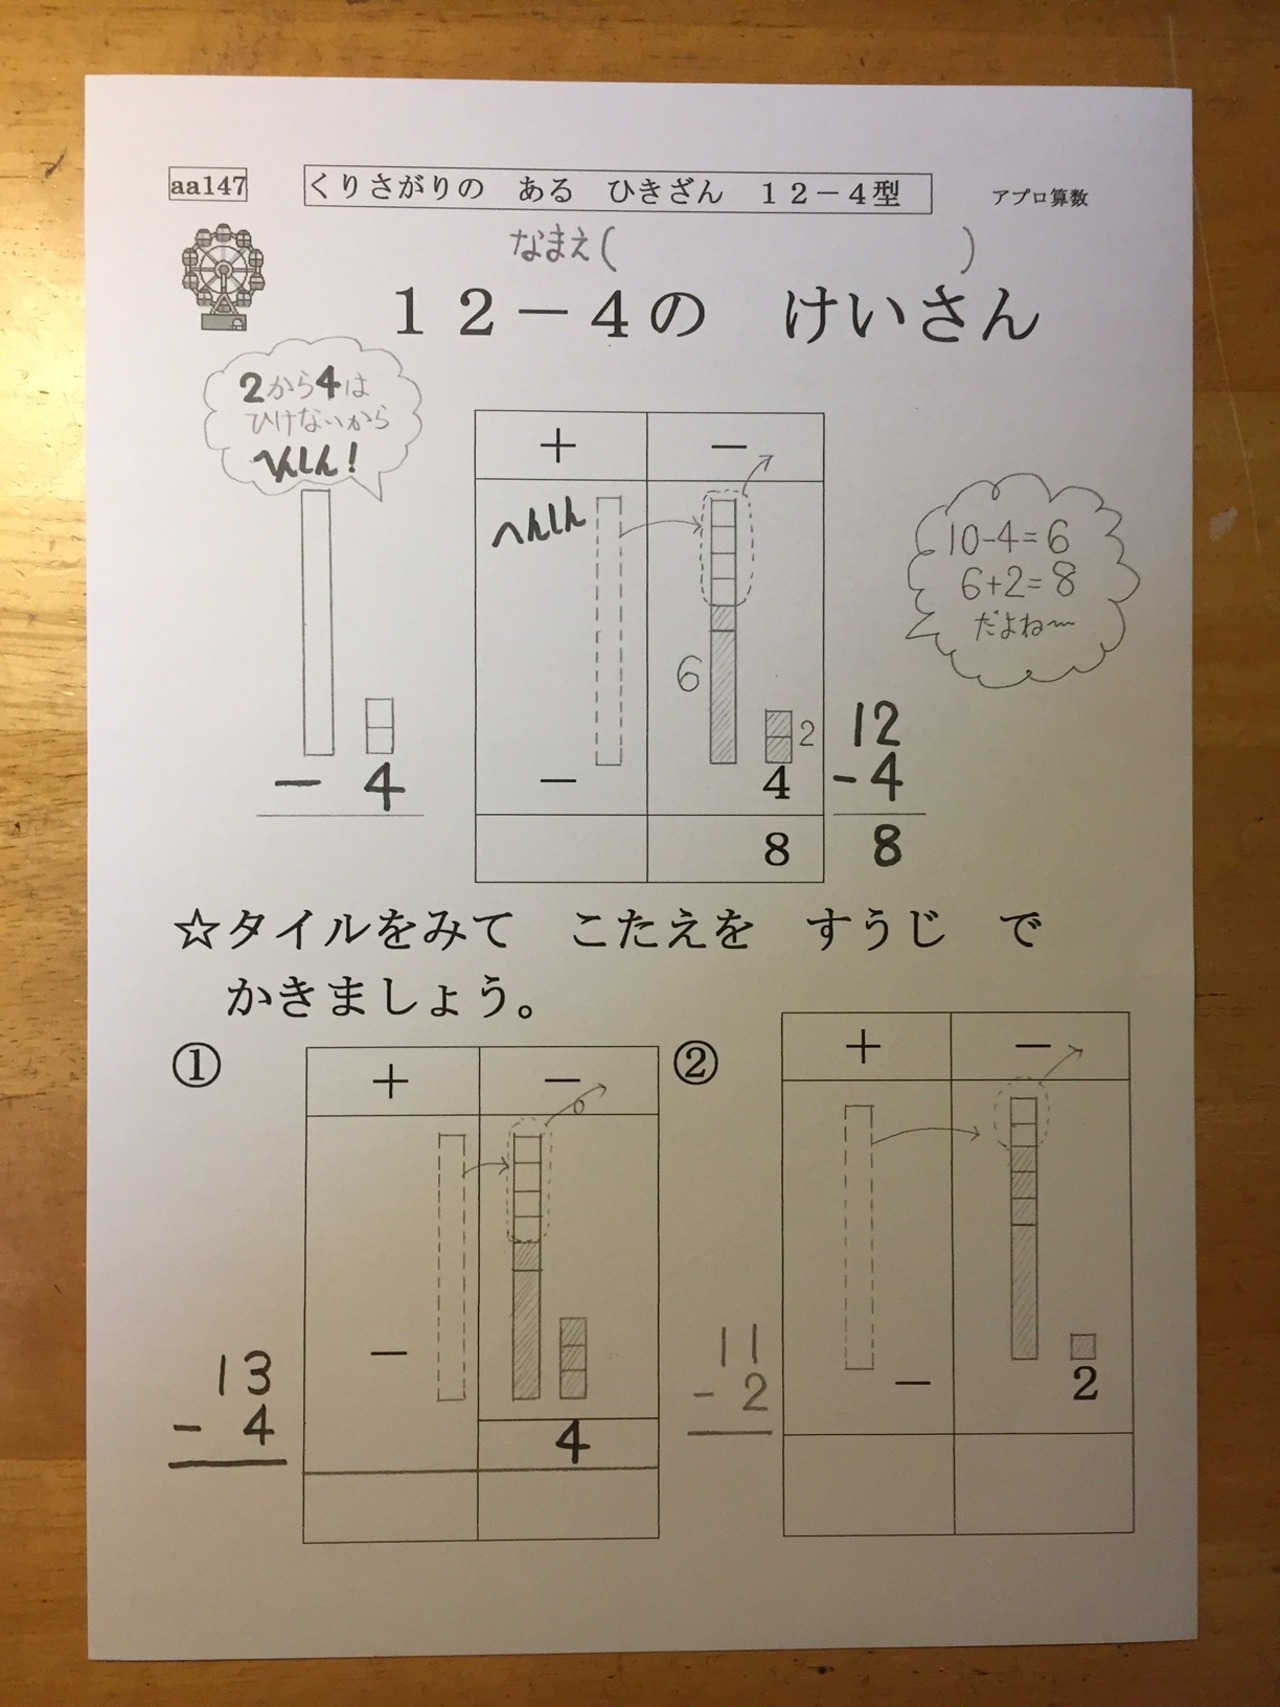 aa147
くりさがりの　ある　ひきざん　１２－４型
アプロ算数
なまえ(　　　　　)
１２－４の　けいさん
2から4は
ひけないから
へんしん!
－ 4
＋ －
へんしん
6
2
－ 4
8
10-4=6
6+2=8
だよね〜
12
-4
8
☆タイルをみて　こたえを　すうじ　で
かきましょう。
①
＋ －
－
4
13
- 4
②
＋ －
－ 2
11
- 2